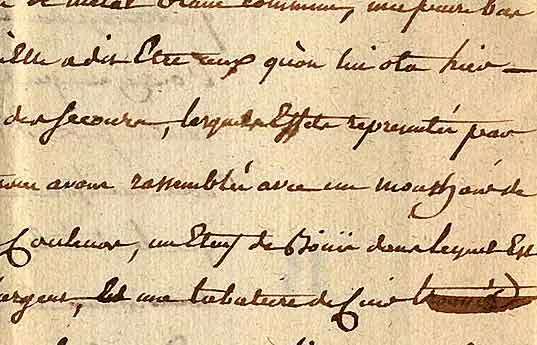 de metal blanc commun, une paire bas
qu'elle a dit Etre ceux qu'on lui ota hier
des secours, lesquels Effets representés par
nous avons rassemblés avec un mouchoir de
Couleur, un Etuy de Boüis dans lequel Est
argent, Et une tabatiere de Cuir